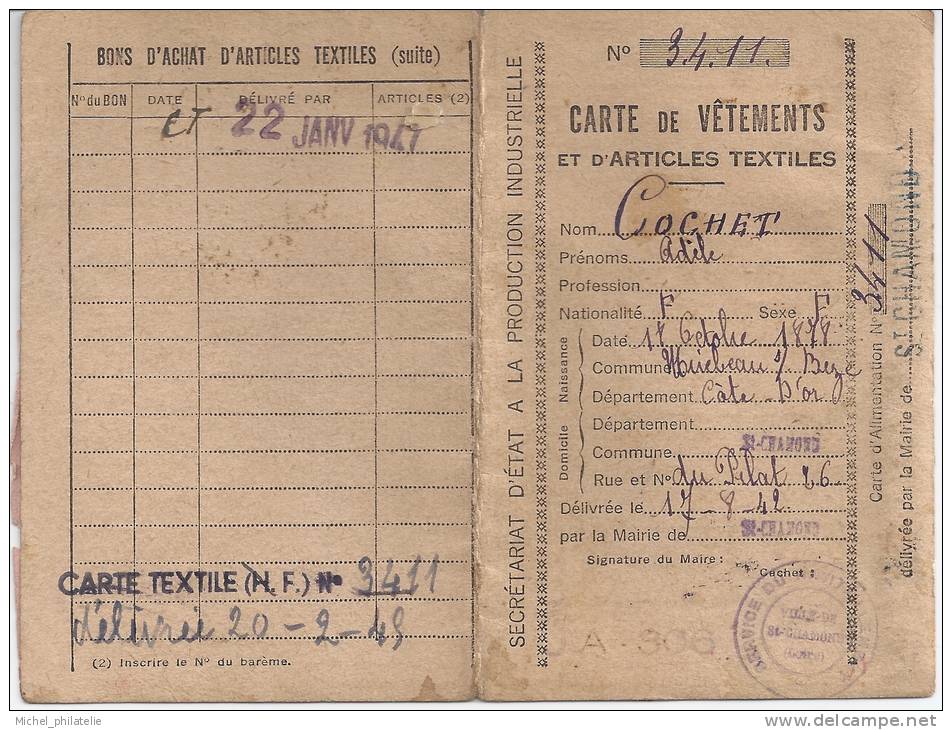 BONS D'ACHAT D'ARTICLES TEXTILES (suite)
Nº du BON DATE DÉLIVRÉ PAR ARTICLES (2)
CT 22 JANV 1947
CARTE TEXTILE (N. F.) Nº 3411
délivrée 20-2-45
(2) Inscrire le Nº du barème.
SECRÉTARIAT D'ÉTAT A LA PRODUCTION INDUSTRIELLE
Nº 3.4.11.
CARTE DE VÊTEMENTS
ET D'ARTICLES TEXTILES
Nom COCHET
Prénoms Adèle
Profession
Nationalité F Sexe F
Naissance
Date 18 Octobre 1878
Commune Mirebeau s/ Beze
Département Côte D'or
Domicile
Département
Commune St-CHAMOND
Rue et Nº du Pilat 26
Délivrée le 17-8-42
par la Mairie de St-CHAMOND
Signature du Maire :
Cachet :
SERVICE
VILLE DE
St-CHAMOND
(Loire)
Carte d'Alimentation Nº 3411
délivrée par la Mairie de ST CHAMOND
Michel_philatelie
www.delcampe.net